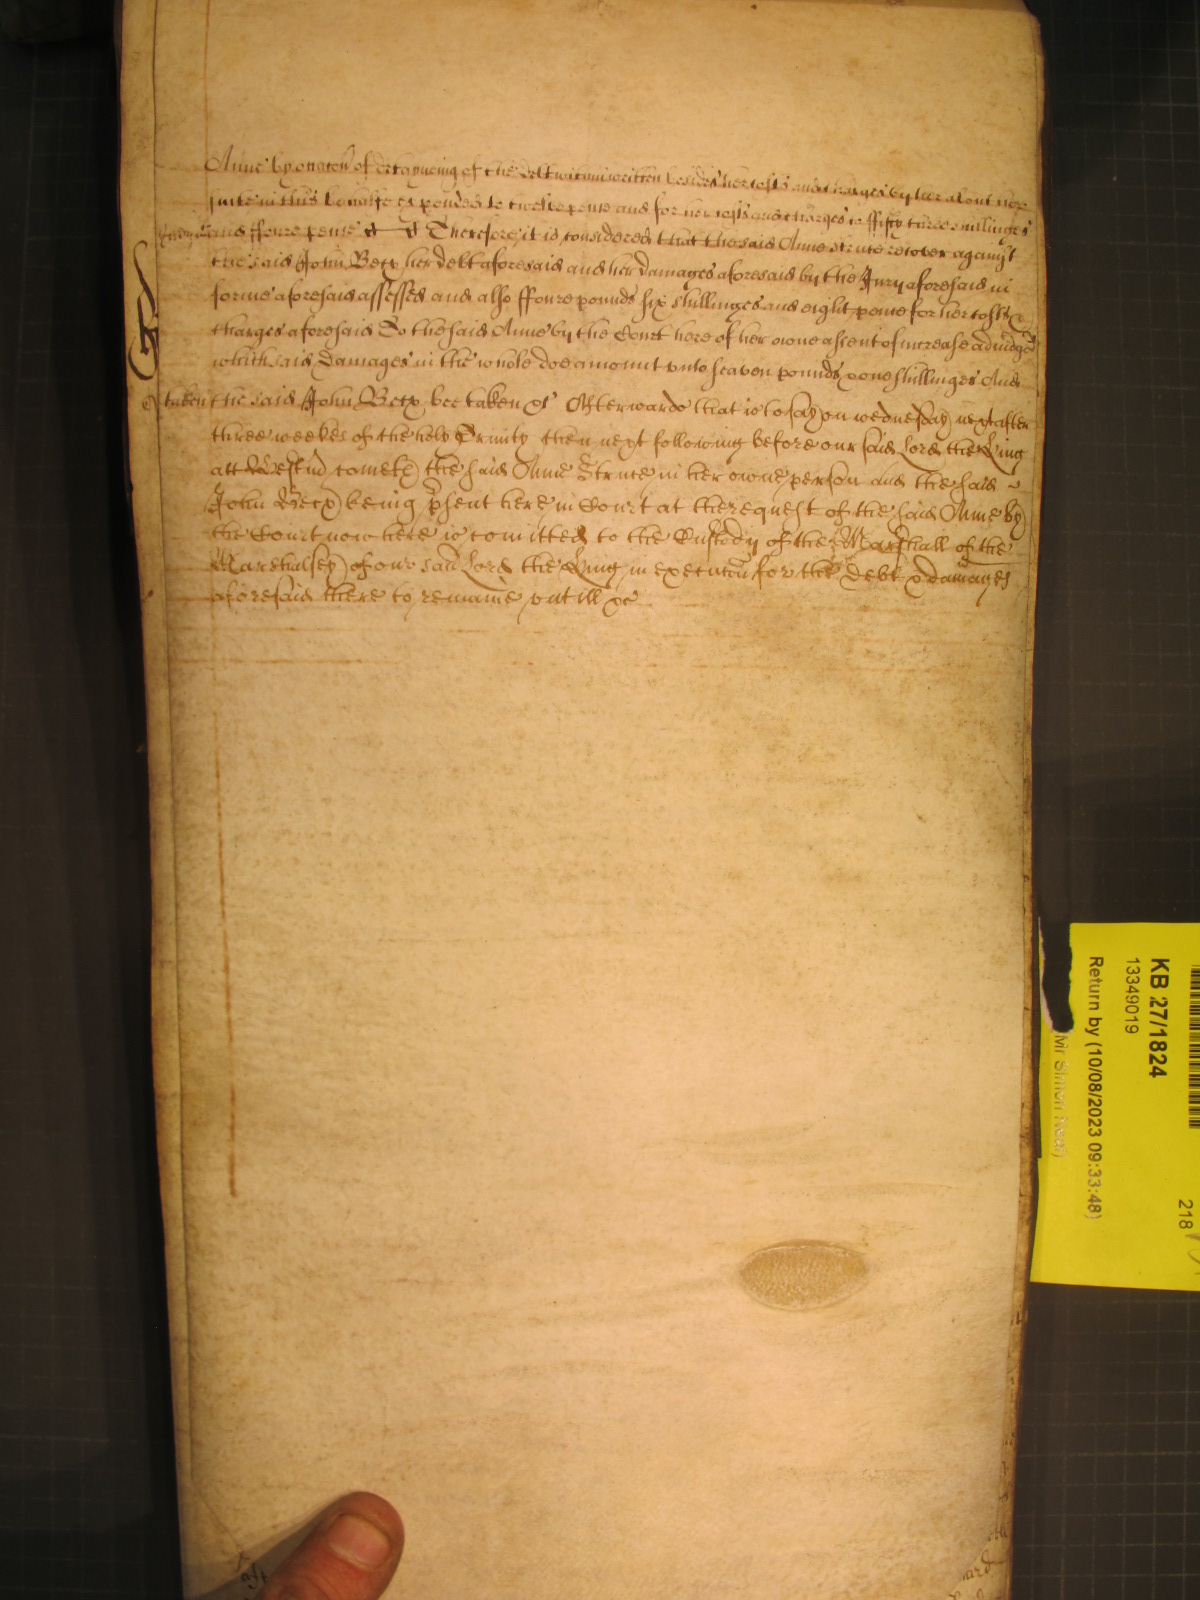 Anne by occac̃on of detayneing of the debt within written besides her costs and charges by her about her
suite in this behalfe expended to twelve pence and for her costs and charges to ffifty three shillinges
and ffoure pence Therefore it is considered that the said Anne Strute recover against
the said John Betx her debt aforesaid and her damages aforesaid by the Jury aforesaid in
forme aforesaid assessed and also ffoure pounds six shillinges and eight pence for her costs &
charges aforesaid To the said Anne by the Court here of her owne assent of increase adiudged
which said damages in the whole doe amount unto seaven pounds & one shillinges And
taken the said John Betx bee taken &c Afterwards that is to say on wednesday next after
three weekes of the holy Trinity then next following before our said Lord the King
att Westm̃ cometh the said Anne Strute in her owne person and the said
John Betx being p̱sent here in Court at the request of the said Anne by
the Court now here is com̃itted to the Custody of the Marshall of the
Marshalsey of our said Lord the King in execuc̃on for the debt & damages
aforesaid there to remaine untill &c
KB 27/1824
13349019
Return by (10/08/2023 09:33:48)
218